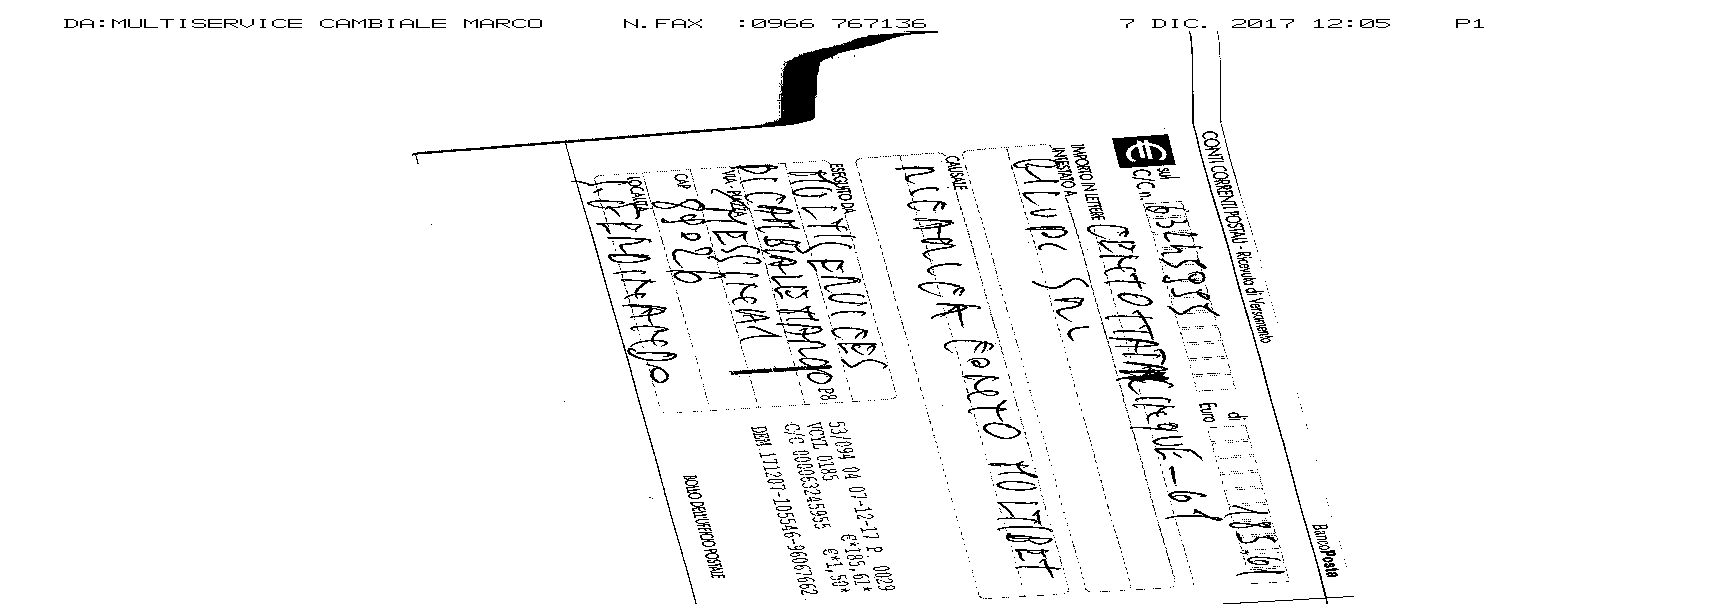 DA:MULTISERVICE CAMBIALE MARCO N.FAX :0966 767136 7 DIC. 2017 12:05 P1
CONTI CORRENTI POSTALI - Ricevuta di Versamento BancoPosta
€ sul C/C n. 63245955 di Euro 185,61
IMPORTO IN LETTERE CENTOTTANTACINQUE-61
INTESTATO A
SRL
CAUSALE
RICARICA CONTO MULTIBET
ESEGUITO DA
MULTISERVICES
DI CAMBIALE MARCO
VIA - PIAZZA
CAP 89026
LOCALITÀ
S. FERDINANDO
53/094 04 07-12-17 P. 0029
VCYL 0185 €*185,61*
C/C 000063245955 €*1,50*
BOLLO DELL'UFFICIO POSTALE